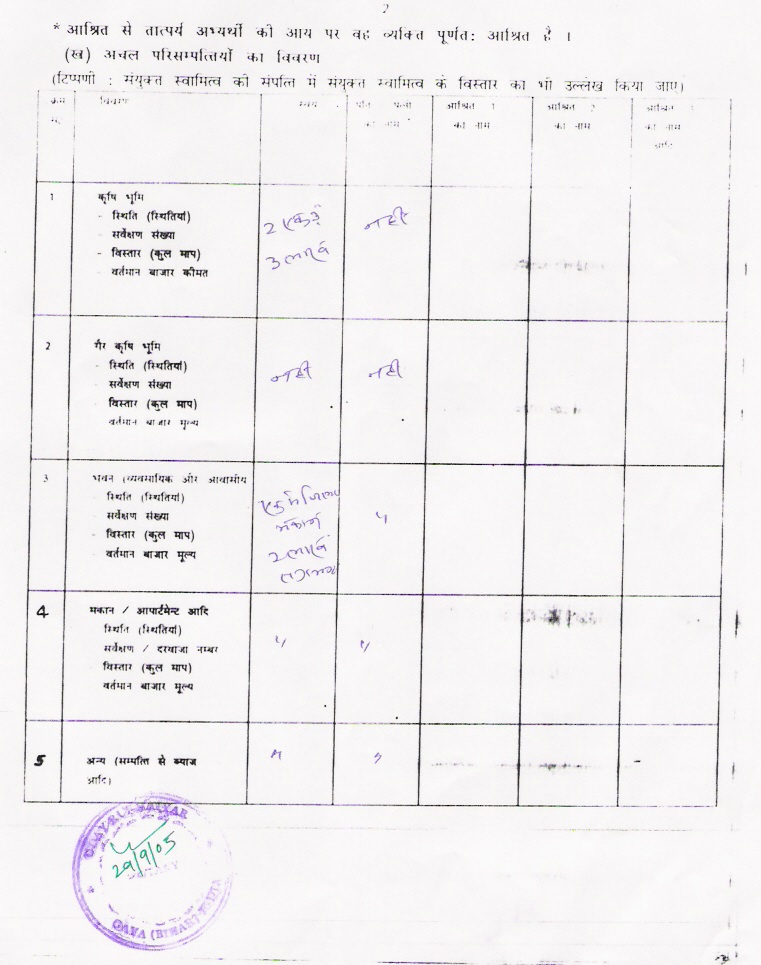 2
* आश्रित से तात्पर्य अभ्यर्थी की आय पर वह व्यक्ति पूर्णत: आश्रित है ।
(ख) अचल परिसम्पत्तियों का विवरण
(टिप्पणी : संयुक्त स्वामित्व की संपत्ति में संयुक्त स्वामित्व के विस्तार का भी उल्लेख किया जाए)
क्रम विवरण स्वयं पति पत्नी आश्रित 1 आश्रित 2 आश्रित
सं. का नाम का नाम का नाम का नाम
आदि
1 कृषि भूमि
- स्थिति (स्थितियां) 2 एकड़ नहीं
- सर्वेक्षण संख्या
- विस्तार (कुल माप) 3 लाख
- वर्तमान बाजार कीमत
2 गैर कृषि भूमि
- स्थिति (स्थितियां) नहीं नहीं
- सर्वेक्षण संख्या
- विस्तार (कुल माप)
वर्तमान बाजार मूल्य
3 भवन (व्यवसायिक और आवासीय
स्थिति (स्थितियां) एक मंजिला
सर्वेक्षण संख्या मकान "
विस्तार (कुल माप) 2 लाख
वर्तमान बाजार मूल्य लगभग
4 मकान / आपार्टमेन्ट आदि
स्थिति (स्थितियां)
सर्वेक्षण / दरवाजा नम्बर " "
विस्तार (कुल माप)
वर्तमान बाजार मूल्य
5 अन्य (सम्पत्ति से ब्याज " " -
आदि)
29/9/05
GAYA (BIHAR) INDIA